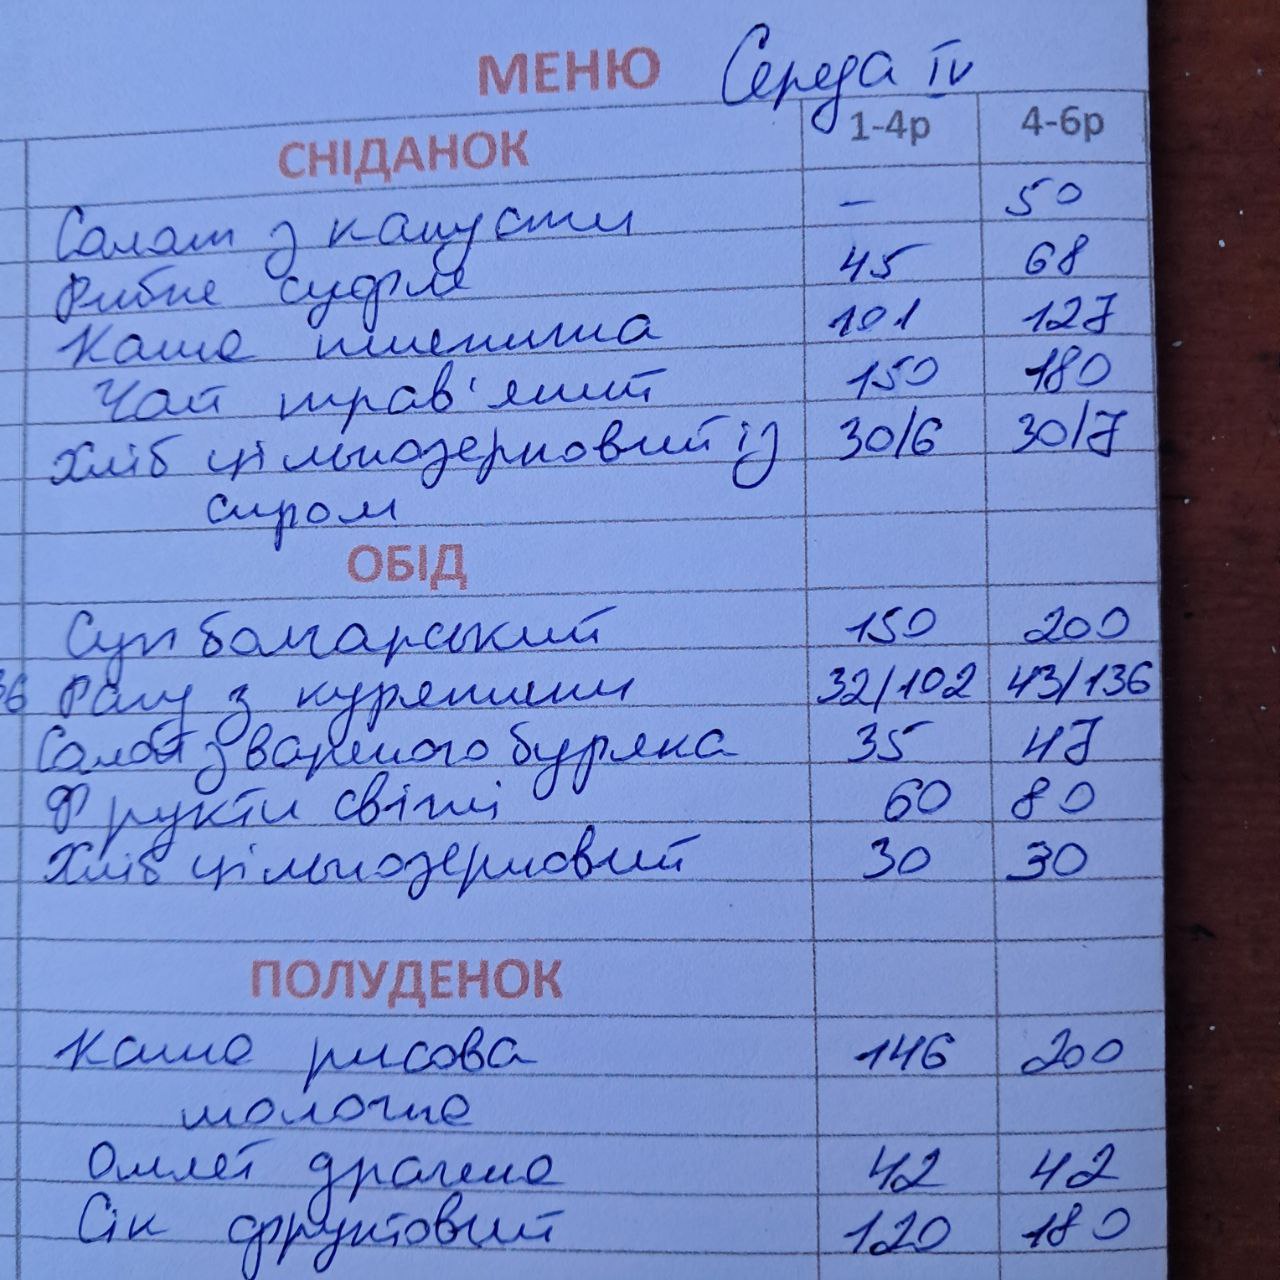 МЕНЮ Середа IV
СНІДАНОК 1-4р 4-6р
Салат з капусти - 50
Рибне суфле 45 68
Каша пшенична 101 127
Чай трав'яний 150 180
Хліб цільнозерновий із 30/6 30/7
сиром
ОБІД
Суп болгарський 150 200
Рагу з курятини 32/102 43/136
Салат з вареного буряка 35 47
Фрукти свіжі 60 80
Хліб цільнозерновий 30 30
ПОЛУДЕНОК
Каша рисова 146 200
молочна
Омлет драчена 42 42
Сік фруктовий 120 180